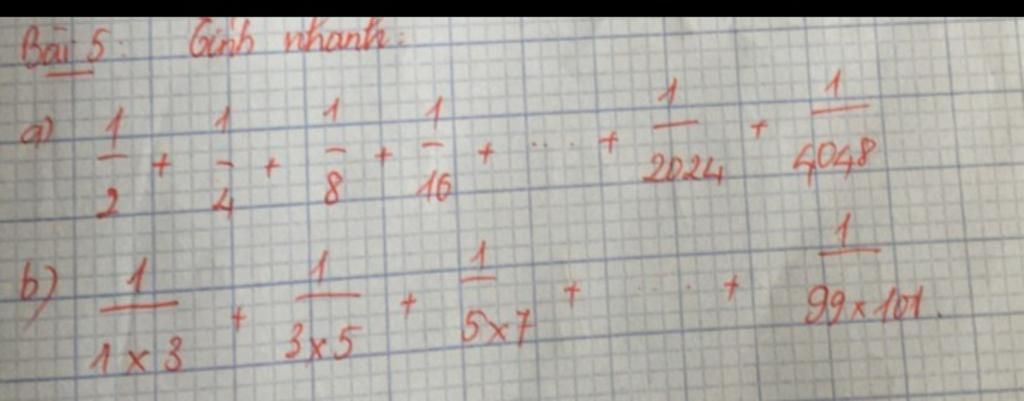 Bài 5: Tính nhanh:
a) 1/2 + 1/4 + 1/8 + 1/16 + .... + 1/2024 + 1/4048
b) 1/(1 x 3) + 1/(3 x 5) + 1/(5 x 7) + .... + 1/(99 x 101).